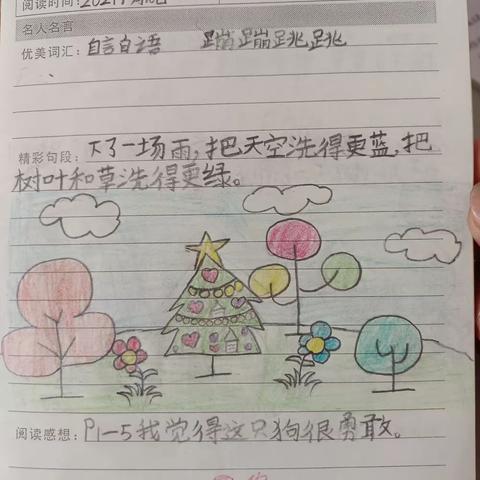 阅读时间：2021年
名人名言
优美词汇：自言自语 蹦蹦跳跳
精彩句段：下了一场雨，把天空洗得更蓝，把
树叶和草洗得更绿。
阅读感想：P1-5我觉得这只狗很勇敢。